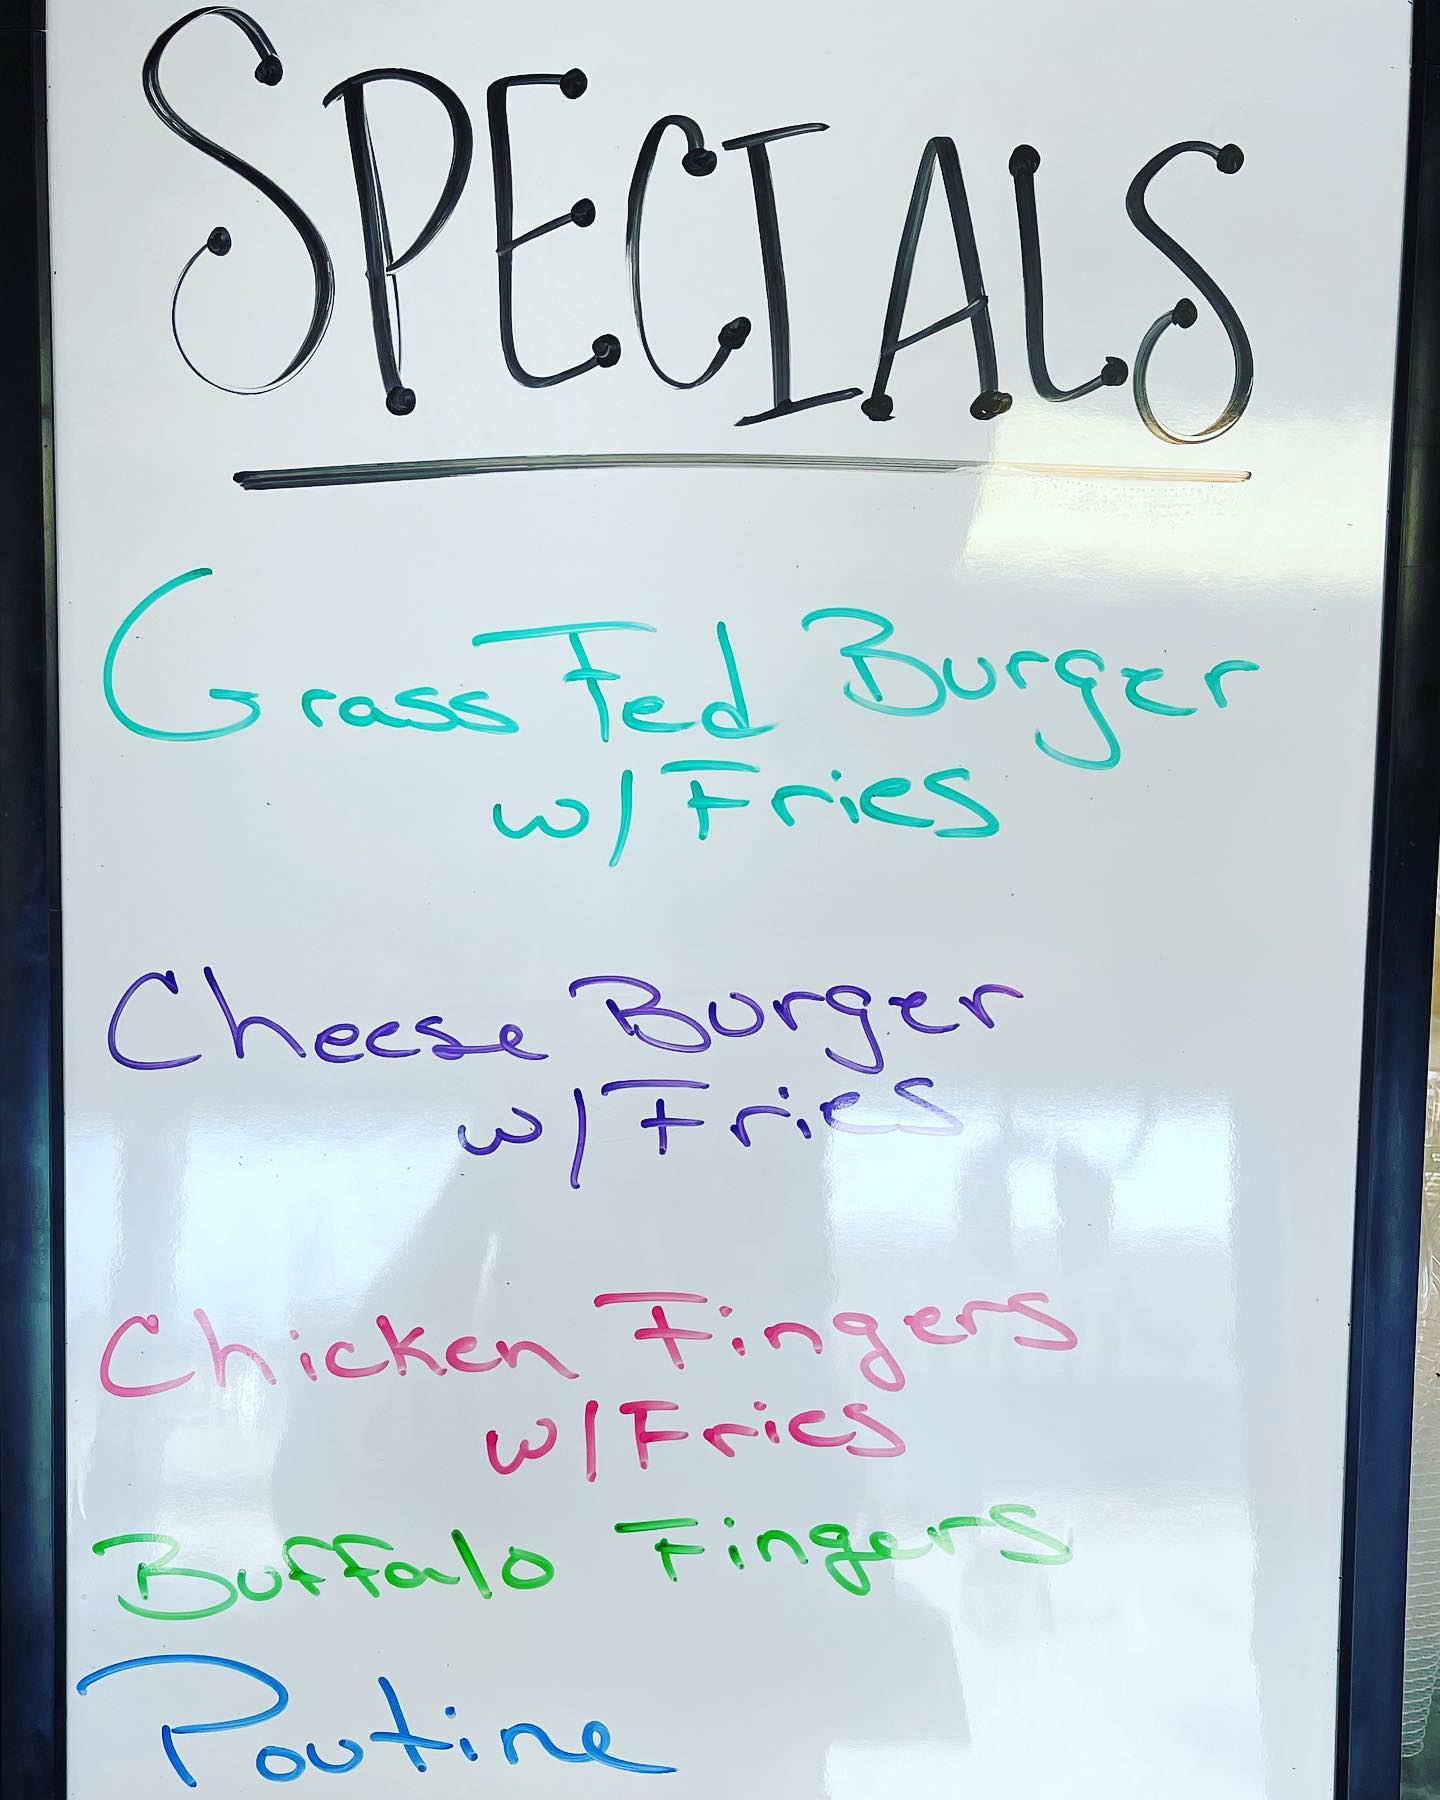 SPECIALS
Grass Fed Burger
w/ Fries
Cheese Burger
w/ Fries
Chicken Fingers
w/ Fries
Buffalo Fingers
Poutine